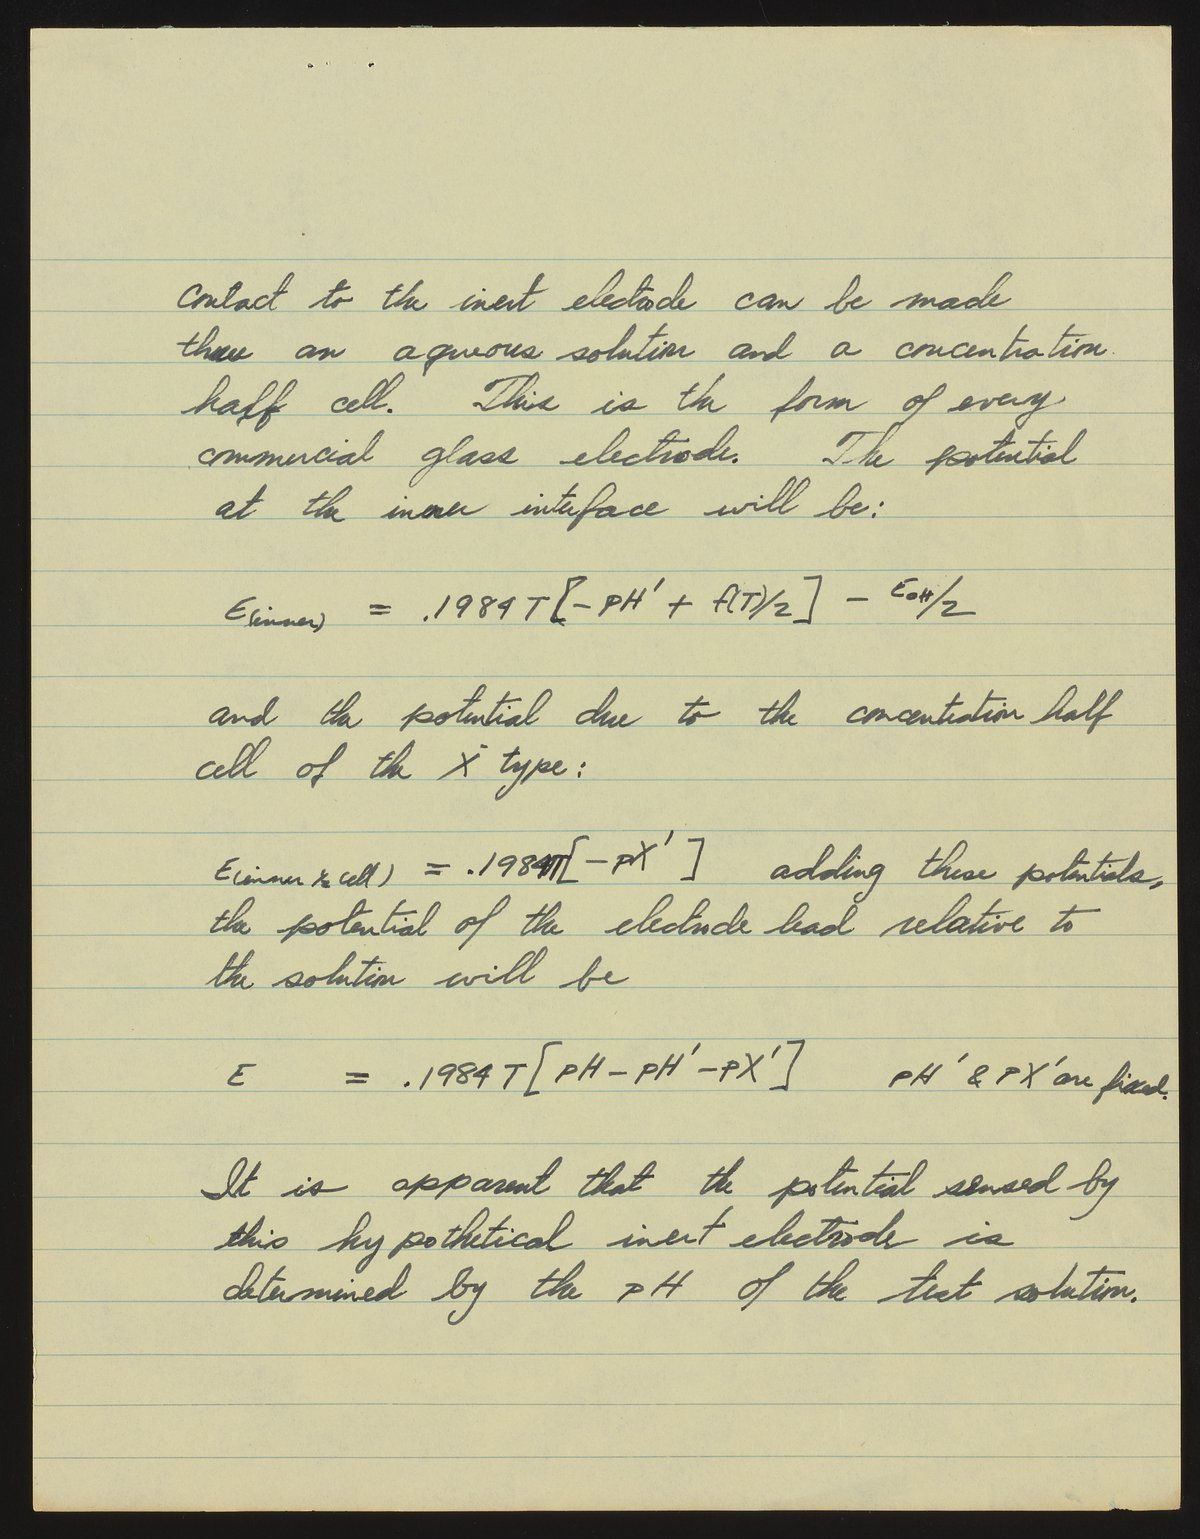 Contact to the inert electrode can be made
thru an aqueous solution and a concentration
half cell. This is the form of every
commercial glass electrode. The potential
at the inner interface will be:
E(inner) = .1984 T [- PH' + f(T)/2] - EOH/2
and the potential due to the concentration half
cell of the X⁻ type:
E(inner ½ cell) = .1984T[-pX'] adding these potentials,
the potential of the electrode lead relative to
the solution will be
E = .1984 T [PH - PH' - PX'] PH' & PX' are fixed.
It is apparent that the potential sensed by
this hypothetical inert electrode is
determined by the PH of the test solution.